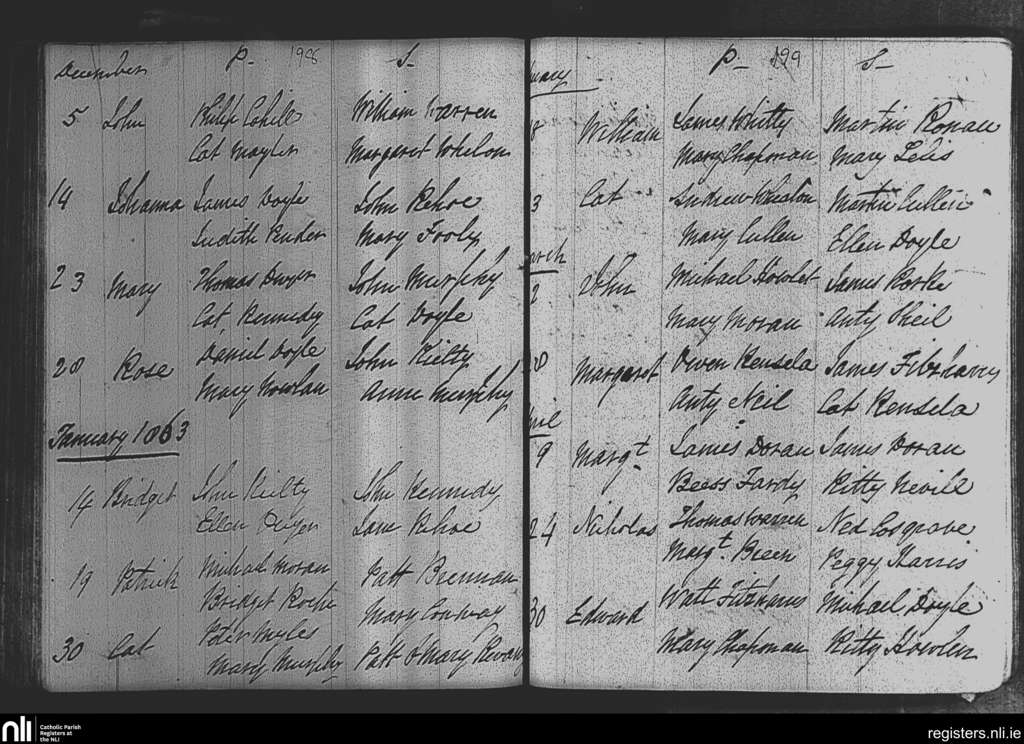 December P- 198 S-
5 John Philip Cahill William Warren
Cat Mayler Margaret Whelon
14 Johanna James Doyle John Kehoe
Judith Ruder Mary Fooly
23 Mary Thomas Dwyer John Murphy
Cat Kennedy Cat Doyle
28 Rose Daniel Doyle John Kielty
Mary Nowlan Anne Murphy
January 1863
14 Bridget John Kielty John Kennedy
Ellen Dwyer Jane Kehoe
19 Patrick Michael Moran Patt Brennan
Bridget Roche Mary Conway
30 Cat Peter Myles
Mary Murphy Patt & Mary
uary P- 199 S-
8 William James Whitty Martin Ronan
Mary Chapman Mary
3 Cat Andrew Whelon Martin Cullen
Mary Cullen Ellen Doyle
arch
2 John Michael Howlet James Rorke
Mary Moran Anty Sheil
28 Margaret Owen Kensela James Fitzharris
Anty Neil Cat Kensela
ril
9 Margt James Doran James Horan
Beess Fardy Kitty Nevill
24 Nicholas Thomas Warren Ned Cosgrave
Margt Breen Peggy Harris
30 Edward Watt Fitzharris Michael Doyle
Mary Chapman Kitty Howlin
nli Catholic Parish
Registers at
the NLI
registers.nli.ie